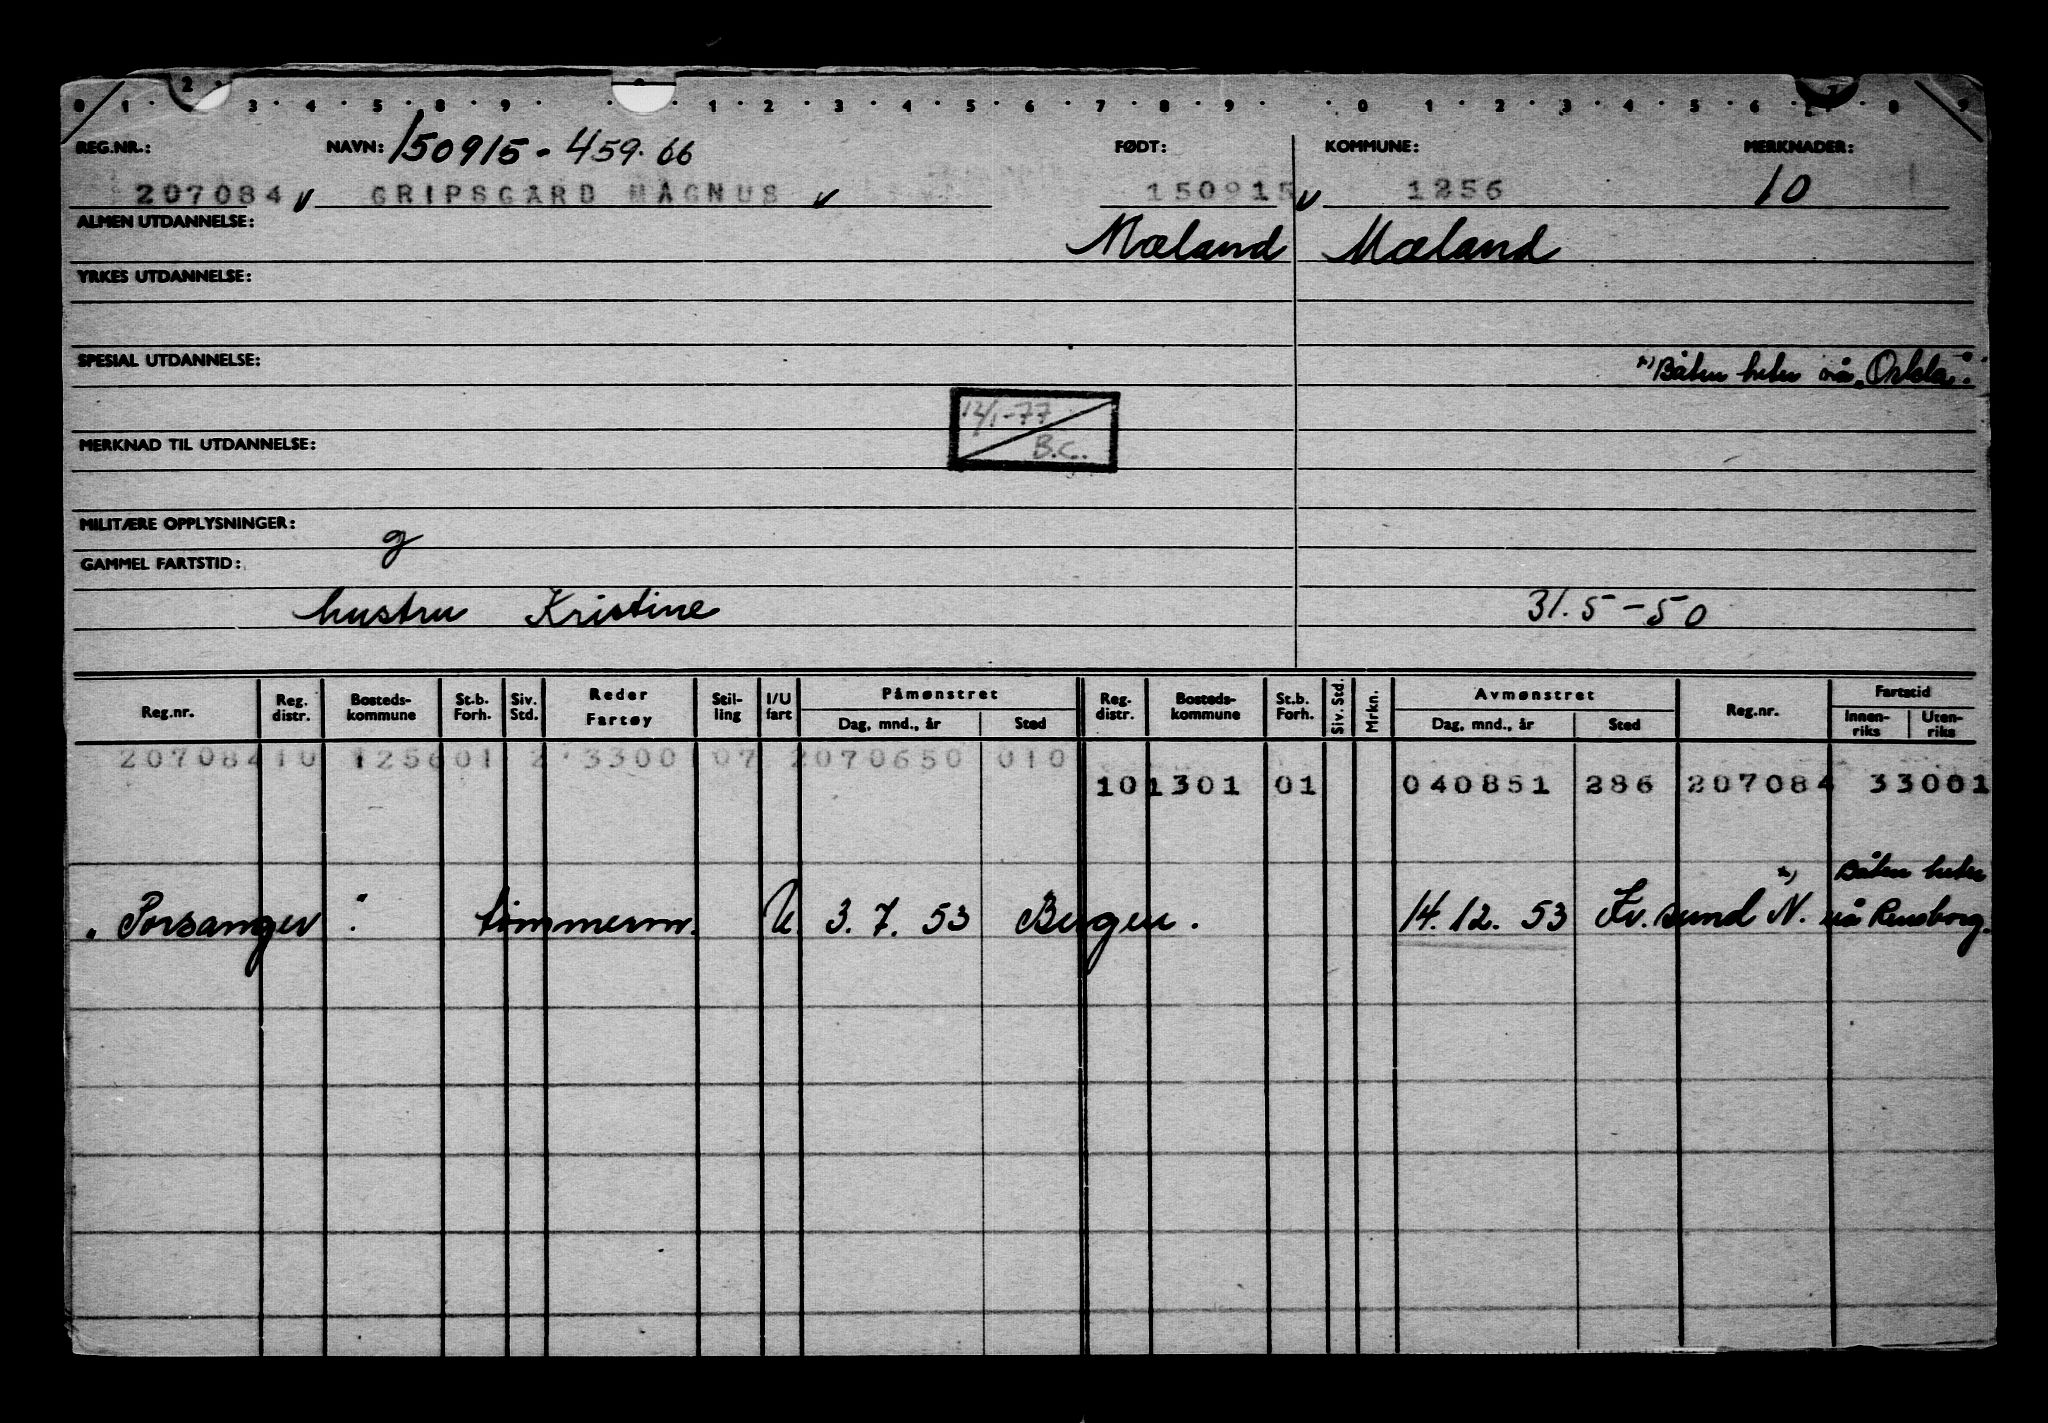 0 1 2 3 4 5 8 9 1 2 3 4 5 6 7 8 9 0 1 2 3 4 5 6 7 8 9
REG.NR.: NAVN: 150915 - 459.66 FØDT: KOMMUNE: MERKNADER:
207084 GRIPSGÅRD MAGNUS 150915 1256 10
ALMEN UTDANNELSE: Mæland Mæland
YRKES UTDANNELSE:
SPESIAL UTDANNELSE: x) Båten heter nå
12/1-77
MERKNAD TIL UTDANNELSE: B.C.
MILITÆRE OPPLYSNINGER: g
GAMMEL FARTSTID:
hustru Kristine 31.5-50
Reg.nr. Reg. distr. Bosteds-kommune St.b. Forh. Siv. Std. Reder Fartøy Stil-ling I/U fart Påmønstret Dag, mnd., år Sted Reg. distr. Bosteds-kommune St.b. Forh. Siv. Std. Mrkn. Avmønstret Dag, mnd., år Sted Reg.nr. Fartstid Innen-riks Uten-riks
207084 10 1256 01 2 3300 107 2070650 010
10 1301 01 040851 286 207084 33001
x) Båten heter
"Porsanger" tømmerm. U 3.7.53 Bergen. 14.12.53 Kr.sund N. nå Rensborg.